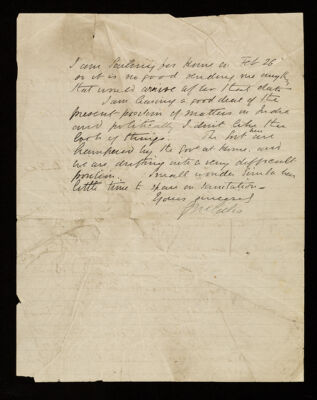 I am sailing for home on Feb 26th
so it is no good sending me anything
that would arrive after that date
I am hearing a good deal of the
present position of matters in India
and politically I don't like the
look of things. The Govt here
hampered by the Govt at home, and
we are drifting into a very difficult
position. Small wonder Simla has
little time to spare on
Yours sincerely